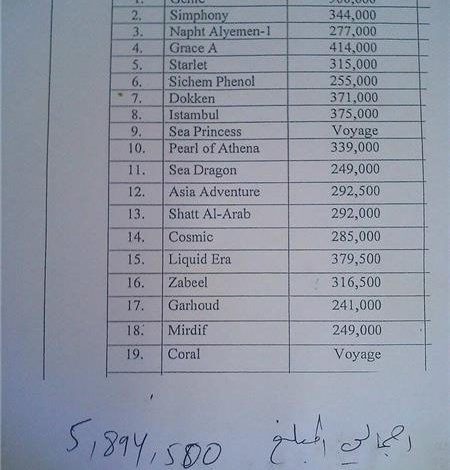 1. Genie 900,000
2. Simphony 344,000
3. Napht Alyemen-1 277,000
4. Grace A 414,000
5. Starlet 315,000
6. Sichem Phenol 255,000
7. Dokken 371,000
8. Istambul 375,000
9. Sea Princess Voyage
10. Pearl of Athena 339,000
11. Sea Dragon 249,000
12. Asia Adventure 292,500
13. Shatt Al-Arab 292,000
14. Cosmic 285,000
15. Liquid Era 379,500
16. Zabeel 316,500
17. Garhoud 241,000
18. Mirdif 249,000
19. Coral Voyage
اجمالي المبلغ 5,894,500